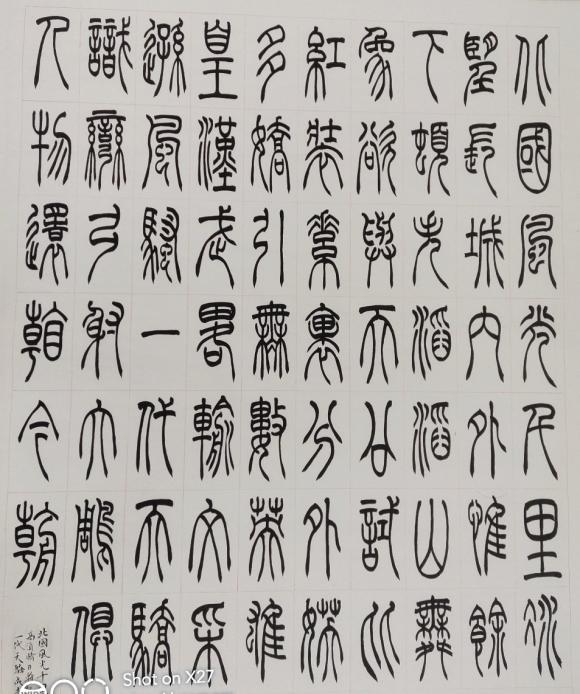 北國風光千里冰
望長城內外惟餘
下頓失滔滔山舞
象欲與天公試比
紅裝素裹分外妖
多嬌引無數英雄
皇漢武略輸文采
遜風騷一代天驕
識彎弓射大鵰俱
人物還看今朝
北國風光千
一代天驕成
Shot on X27